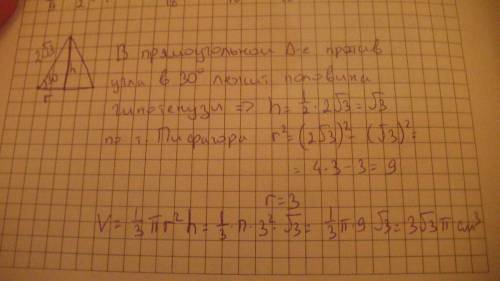 2√3
30°
h
r
В прямоугольном Δ-е против
угла в 30° лежит половина
гипотенузы => h = 1/2 · 2√3 = √3
по т. Пифагора r² = (2√3)² - (√3)² =
= 4·3 - 3 = 9
r = 3
V = 1/3 πr²h = 1/3 · π · 3² · √3 = 1/3 π · 9 · √3 = 3√3 π см³